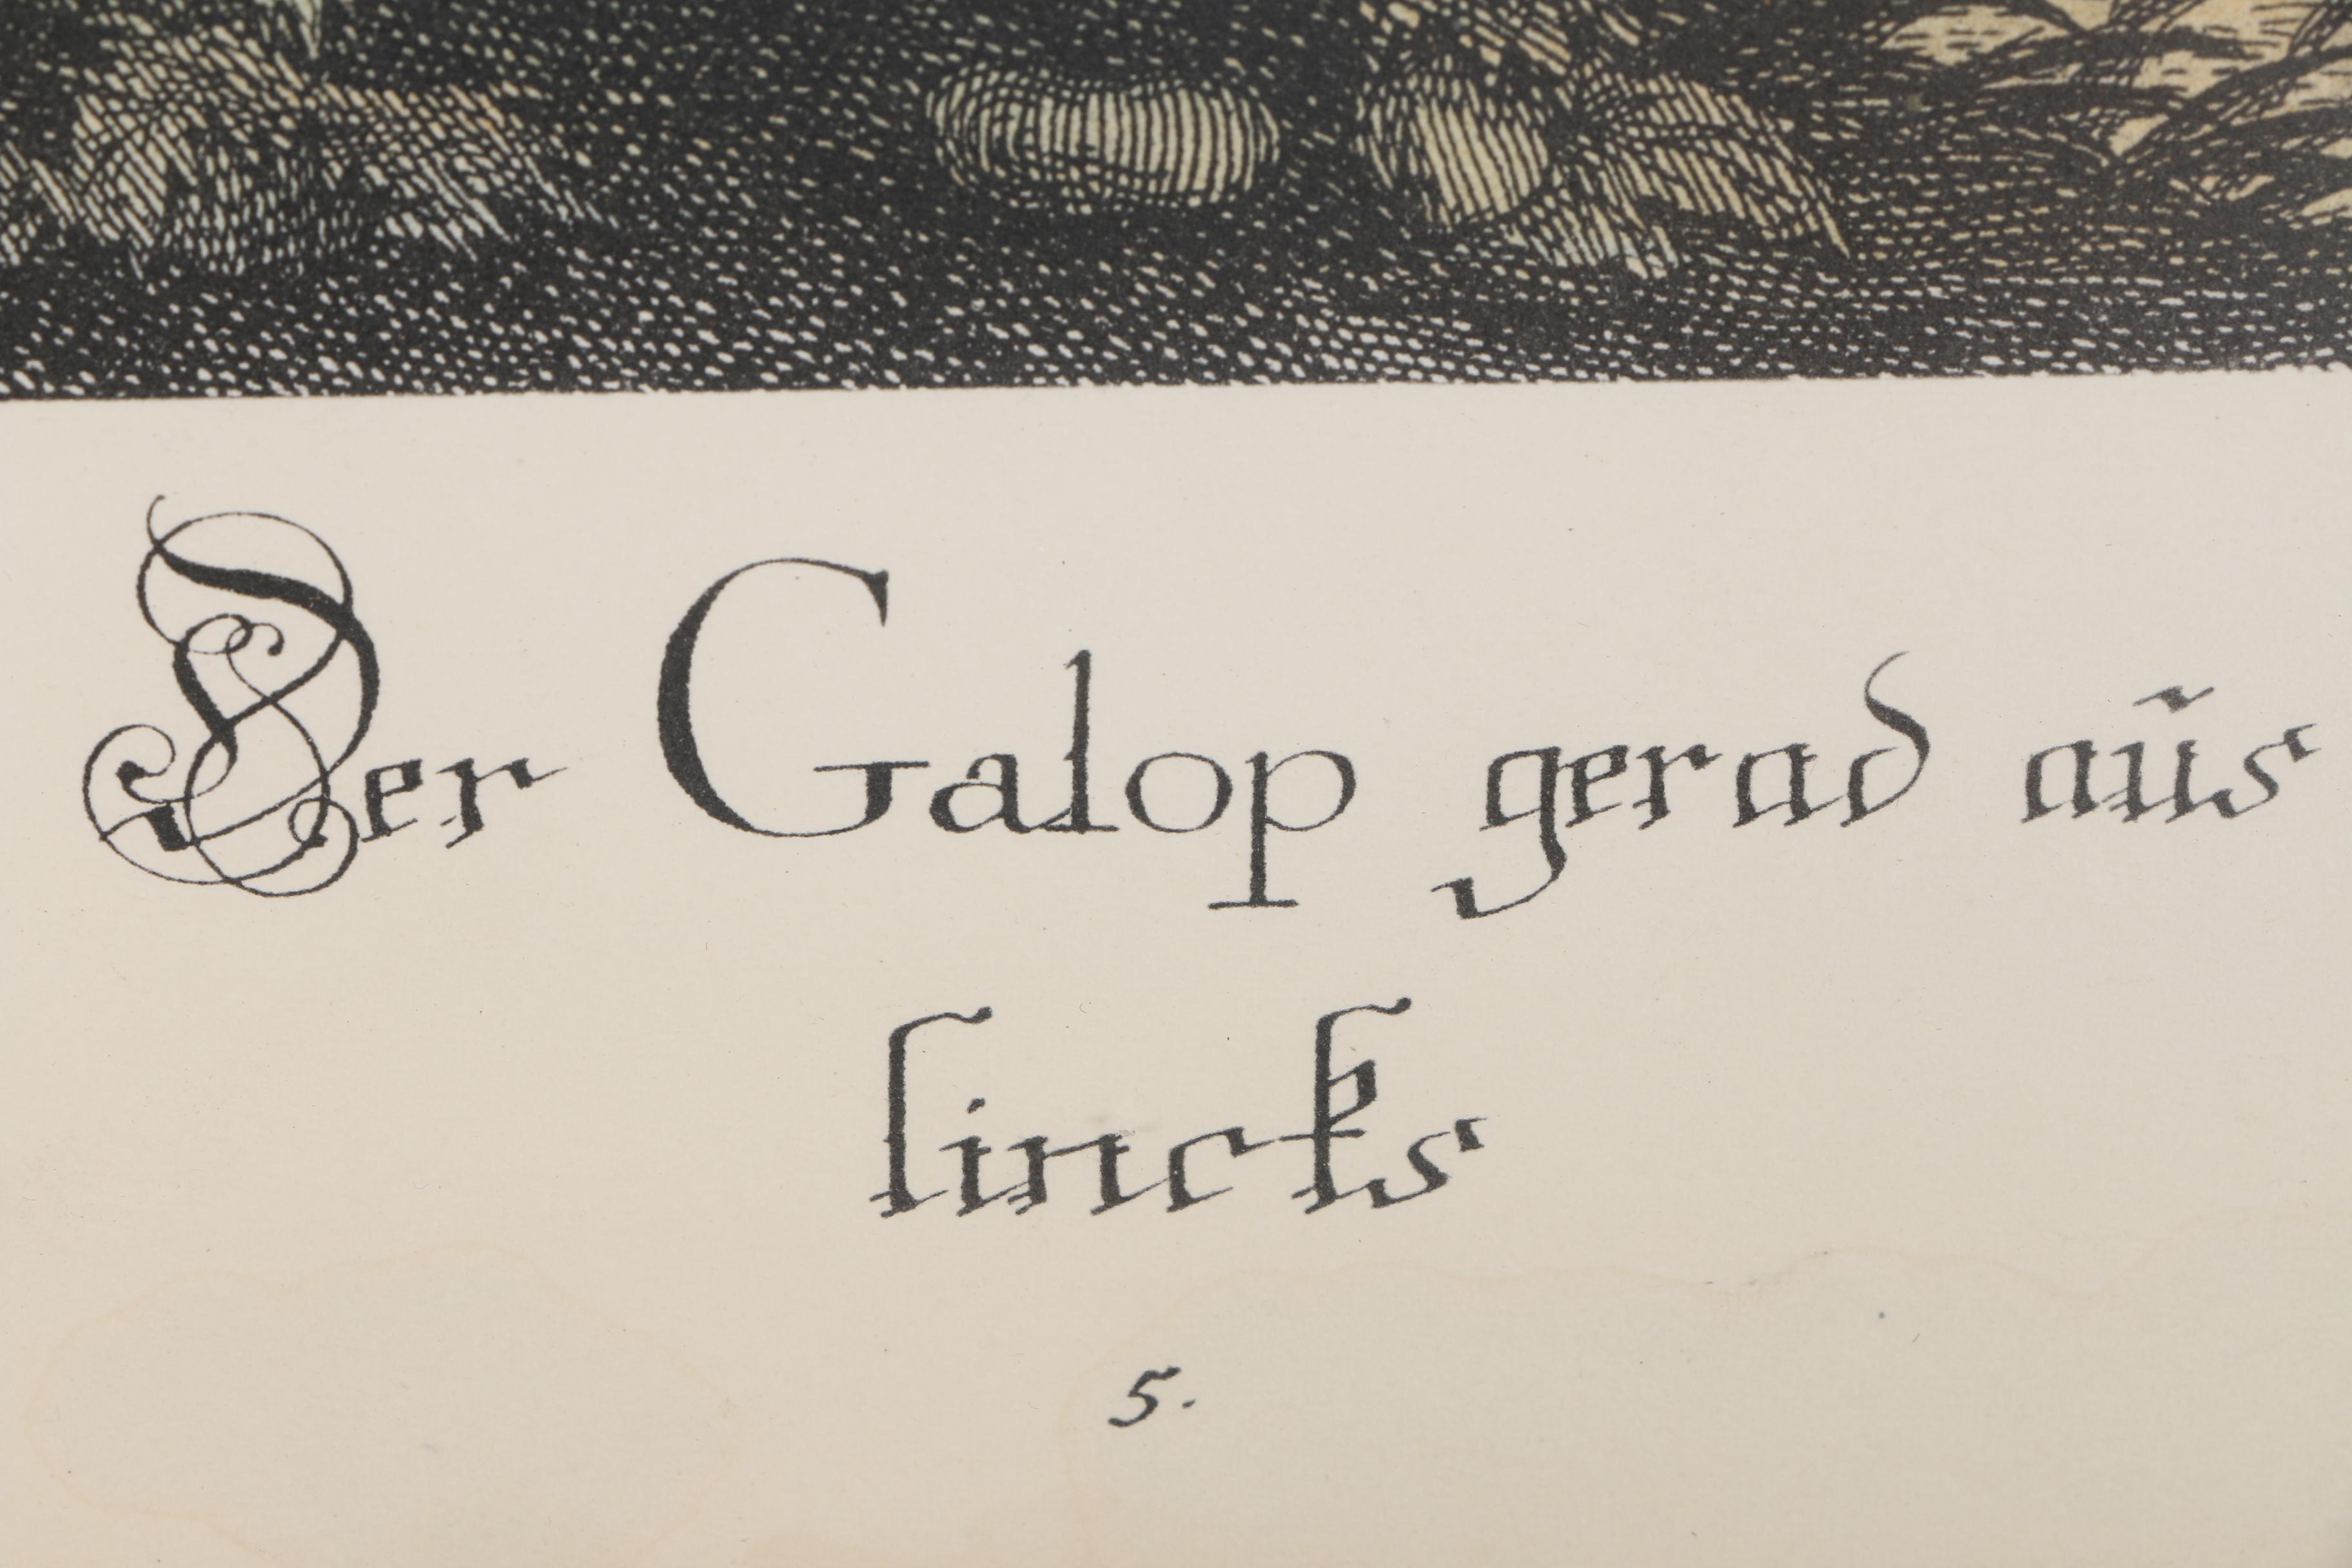 Der Galop gerad aũs
lincks
5.